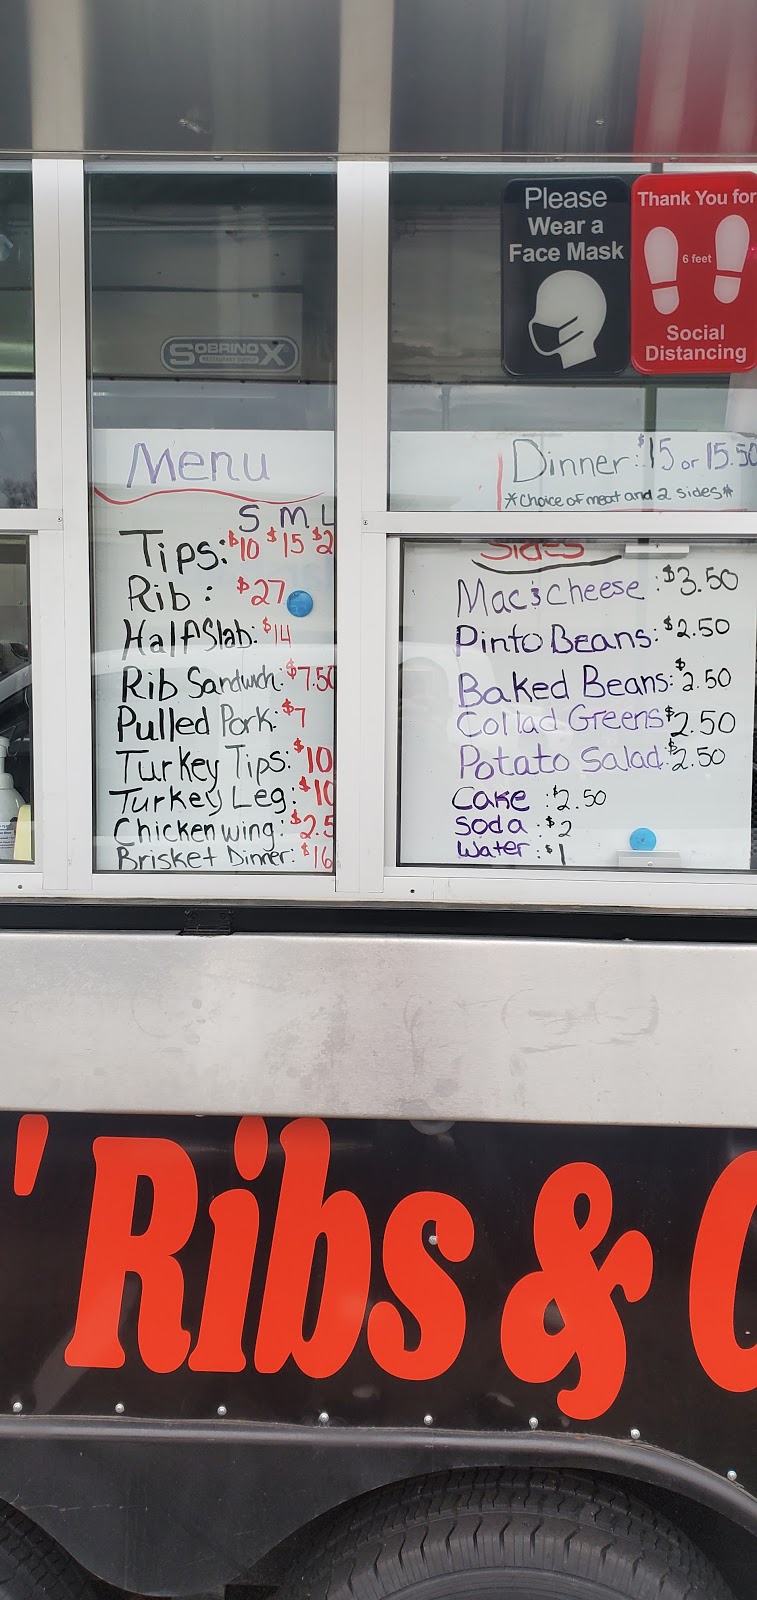 Please
Wear a
Face Mask
Thank You for
6 feet
Social
Distancing
SOBRINOX
RESTAURANT SUPPLY
Menu
S M L
Tips: $10 $15 $2
Rib: $27
Half Slab: $14
Rib Sandwich: $7.50
Pulled Pork: $7
Turkey Tips: $10
Turkey Leg: $10
Chicken wing: $2.5
Brisket Dinner: $16
Dinner: $15 or 15.50
*Choice of meat and 2 sides*
Sides
Mac & Cheese: $3.50
Pinto Beans: $2.50
Baked Beans: $2.50
Collad Greens $2.50
Potato Salad: $2.50
Cake: $2.50
Soda: $2
Water: $1
' Ribs &